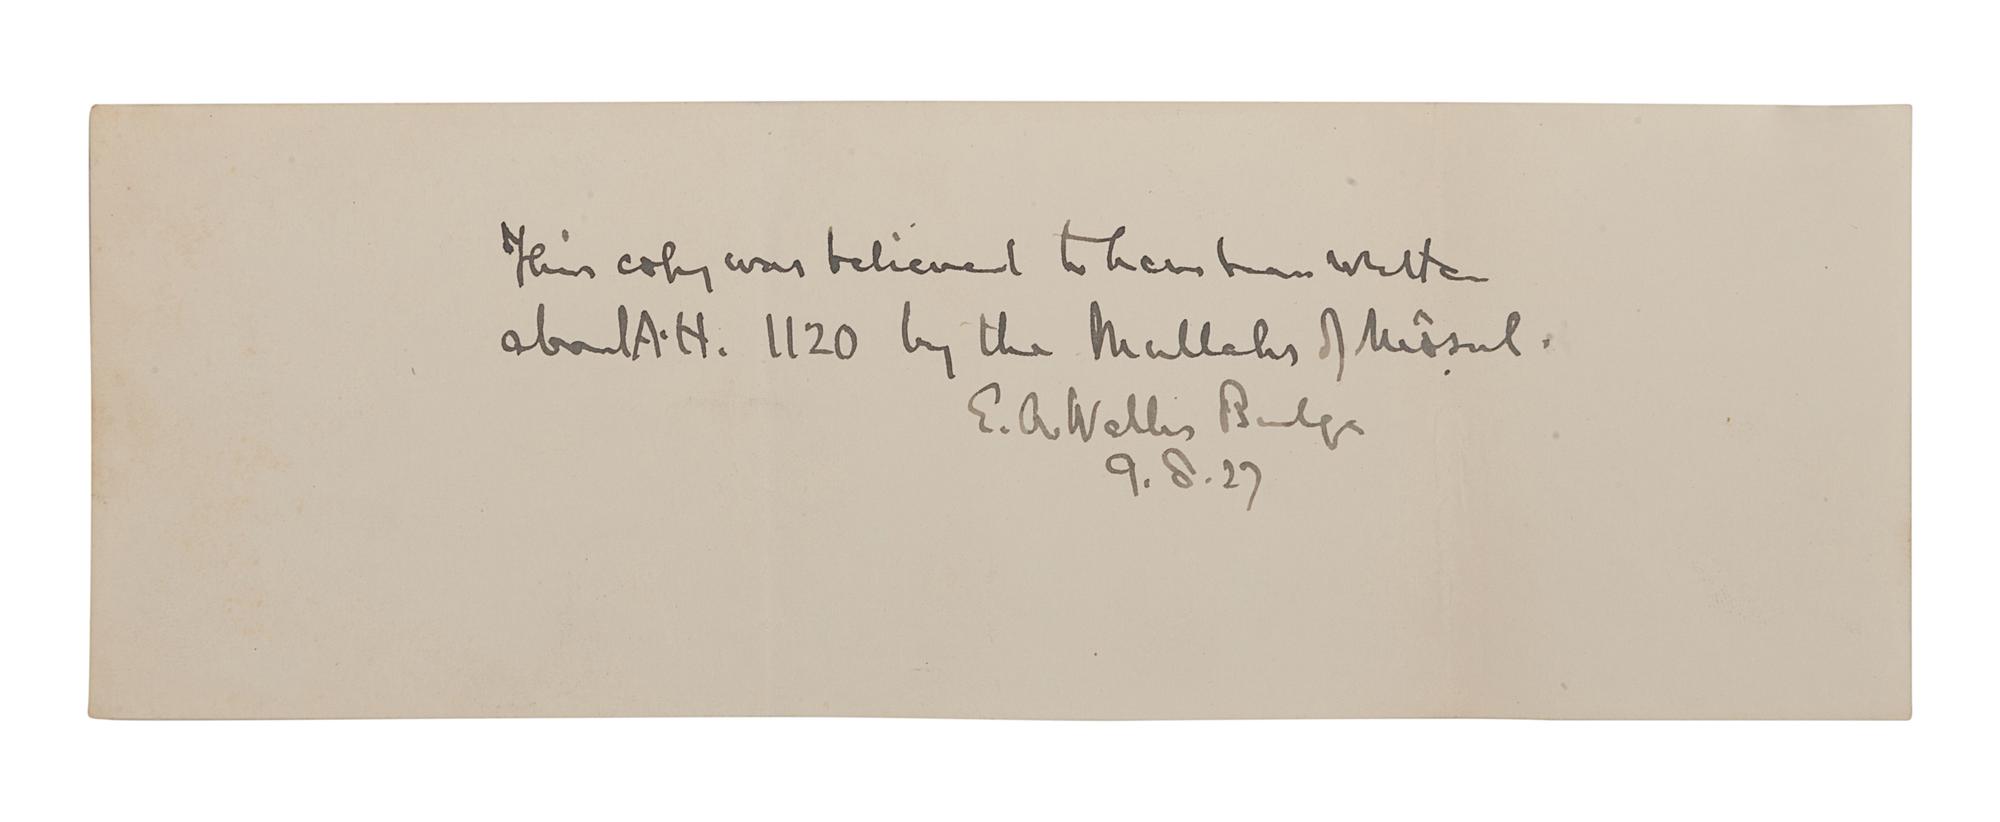 This copy was believed to have been written
about A.H. 1120 by the Mullahs of Môṣul.
E. A. Wallis Budge
9.8.27